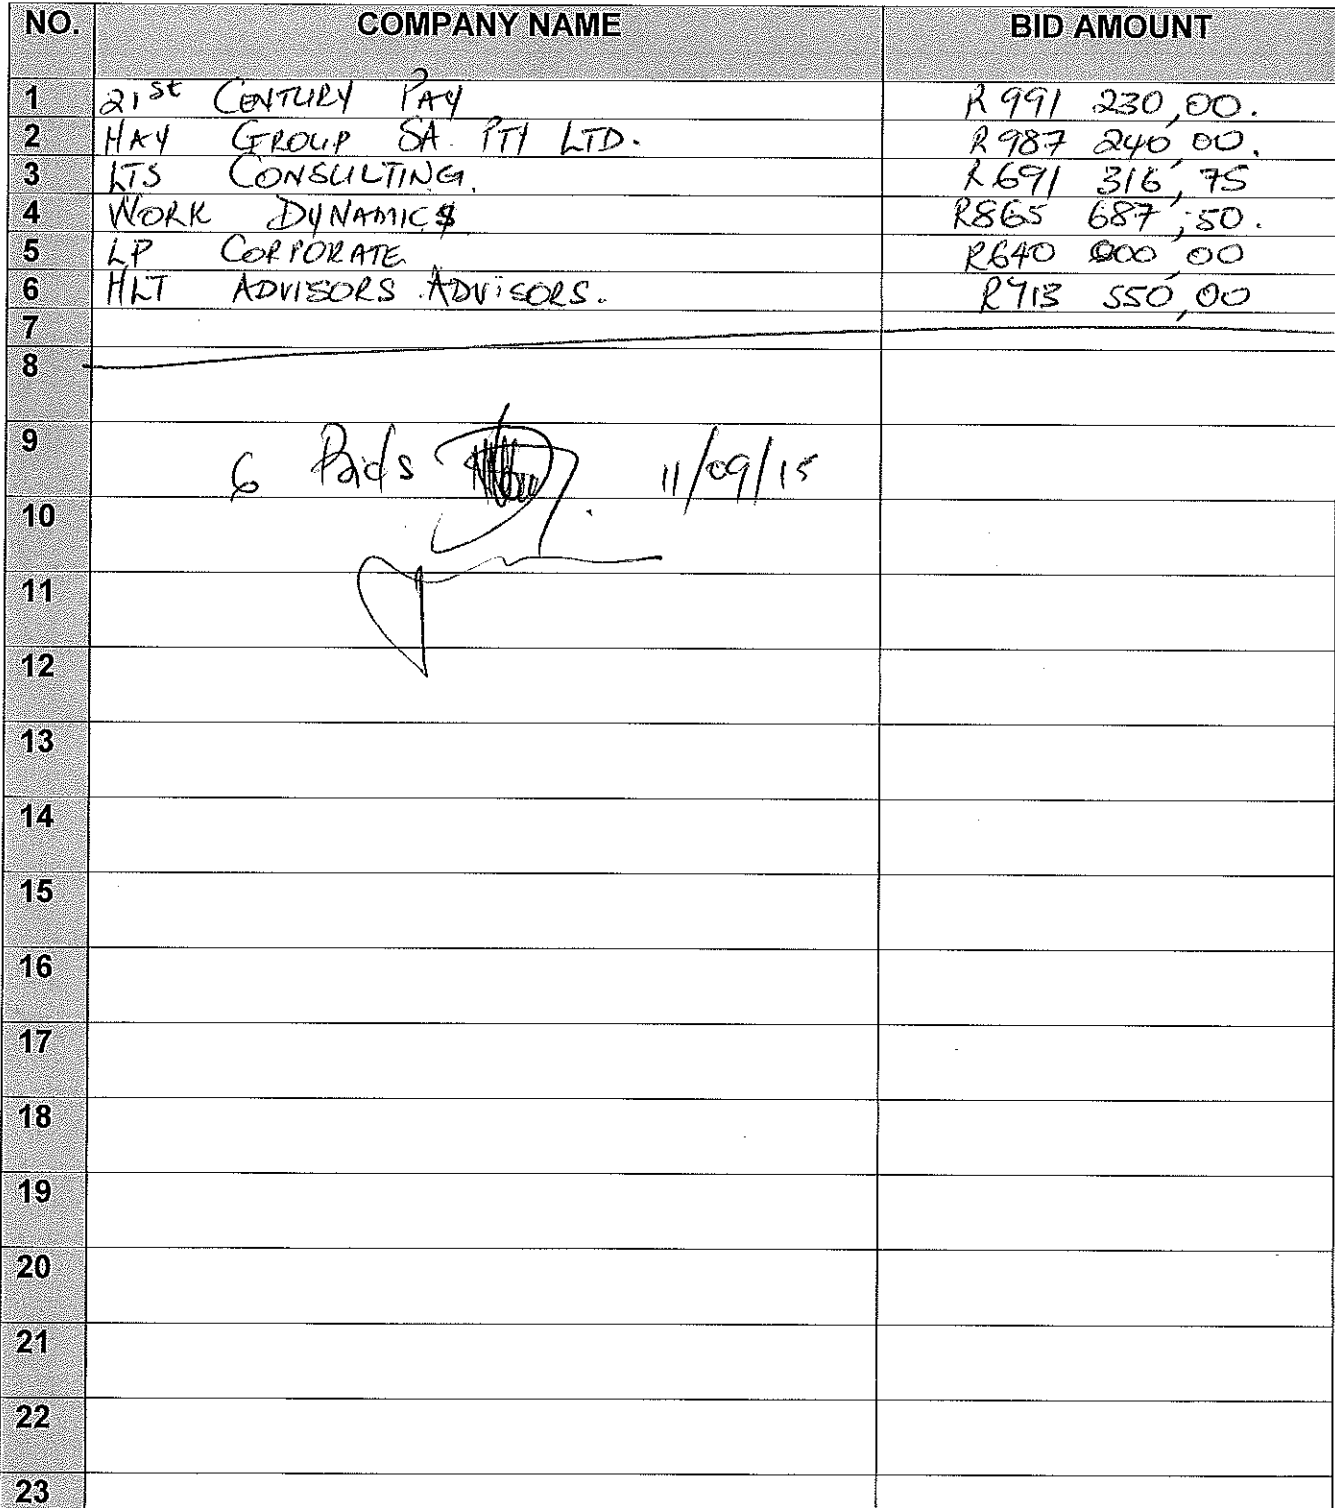 NO. COMPANY NAME BID AMOUNT
1 21st CENTURY PAY R 991 230,00.
2 HAY GROUP SA PTY LTD. R 987 240,00.
3 LTS CONSULTING. R 691 316,75
4 WORK DYNAMICS R865 687,50.
5 LP CORPORATE R640 000,00
6 HLT ADVISORS ADVISORS. R713 550,00
7
8
9 6 Bids 11/09/15
10
11
12
13
14
15
16
17
18
19
20
21
22
23